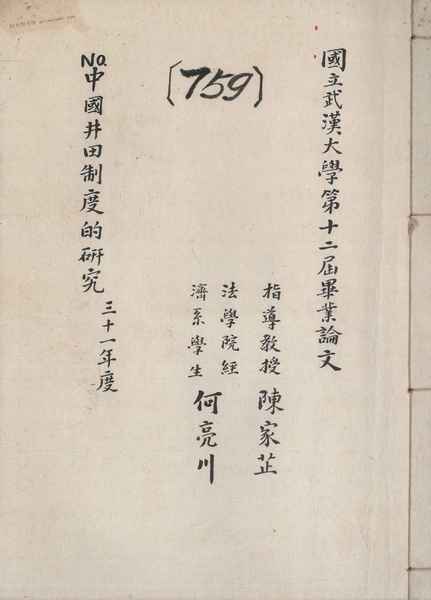 國立武漢大學第十二屆畢業論文
〔759〕
指導教授 陳家芷
法學院經
濟系學生 何亮川
No.中國井田制度的研究
三十一年度